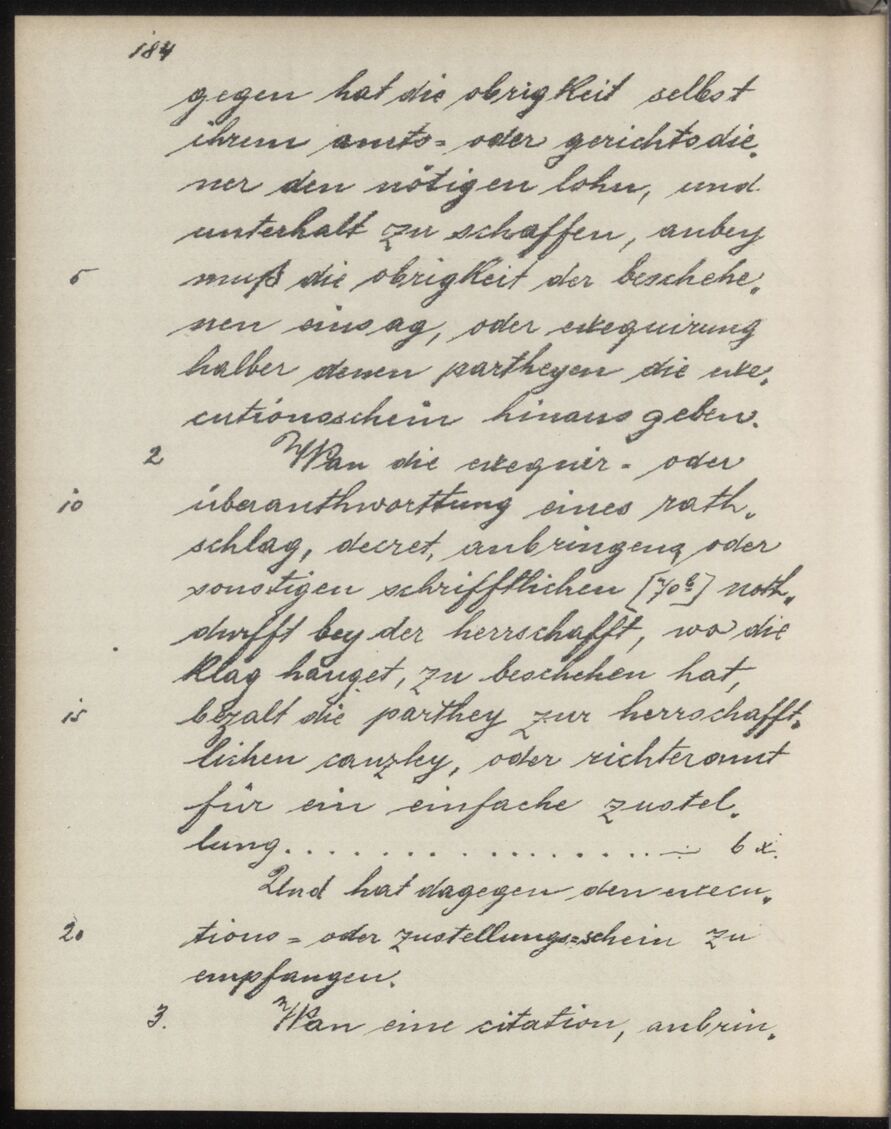 184
gegen hat die obrigkeit selbst
ihrem amts= oder gerichtsdie„
ner den nötigen lohn, und
unterhalt zu schaffen, anbey
5 muß die obrigkeit der beschehe„
nen einsag, oder exequirung
halber denen partheyen die exe„
cutionsschein hinaus geben.
2 Wan die exequir= oder
10 überanthworttung eines rath„
schlag, decret, anbringeng oder
sonstigen schrifftlichen [70b] noth„
durfft bey der herrschafft, wo die
klag hanget, zu beschehen hat,
15 bezalt die parthey zur herrschafft„
lichen canzley, oder richteramt
für ein einfache zustel„
lung. . . . . . . . . . . . . . . . . —:— 6 x.
Und hat dagegen den execu„
20 tions= oder zustellungs=schein zu
empfangen.
3. Wan eine citation, anbrin„